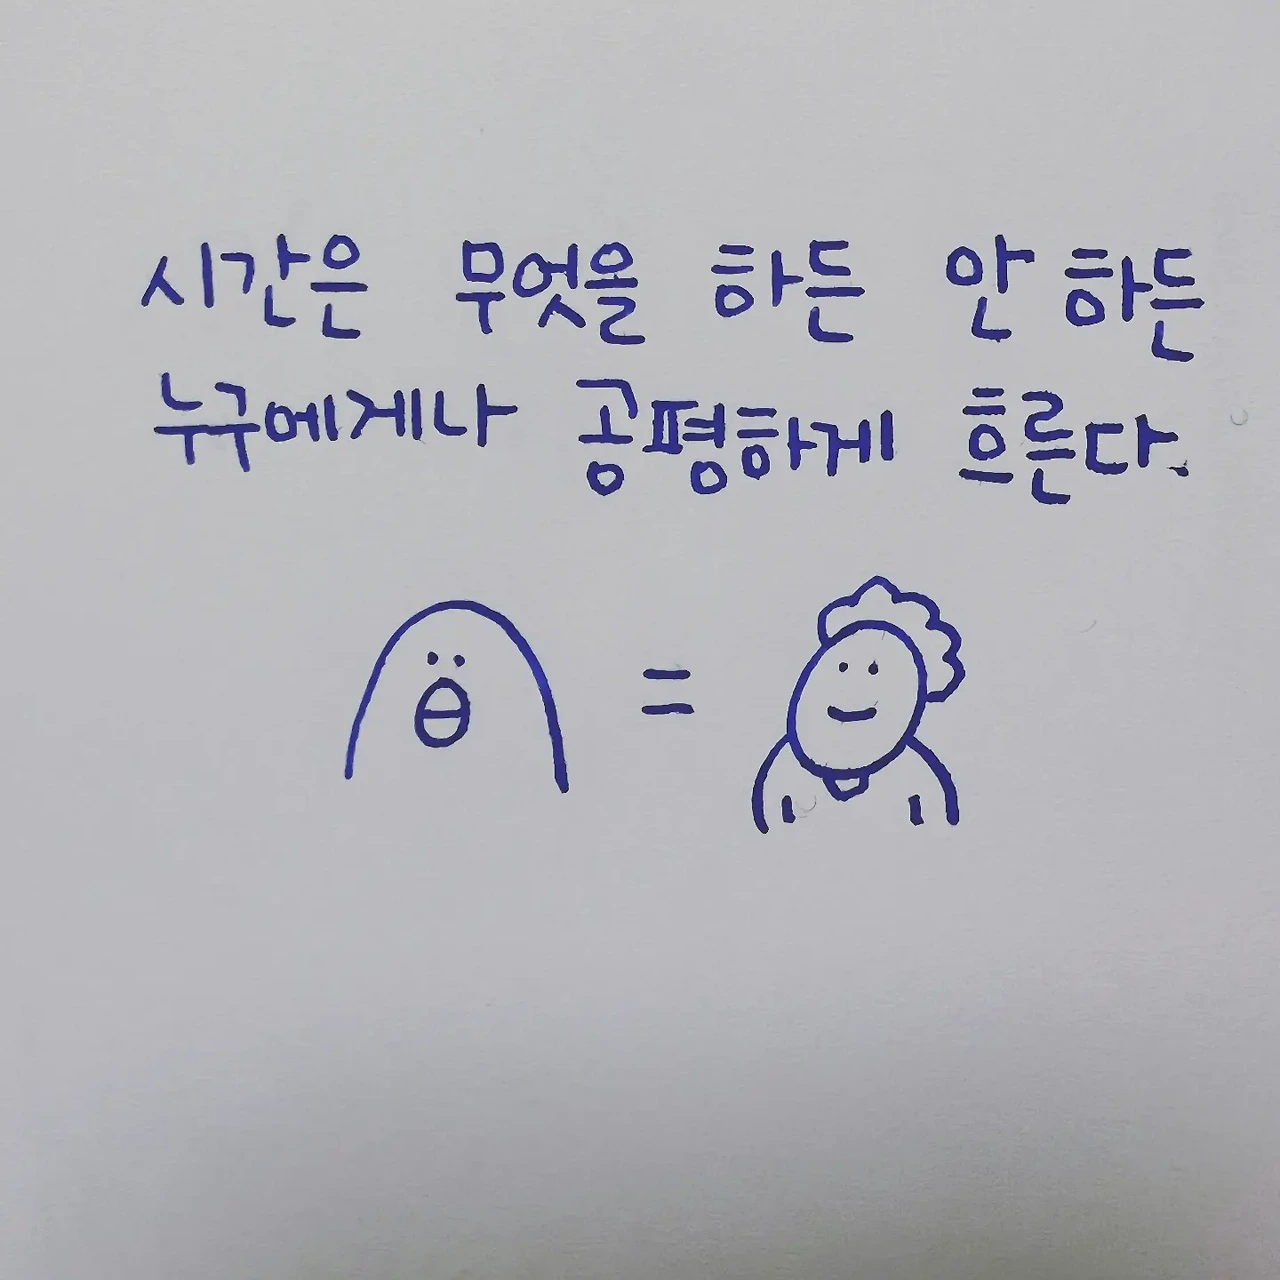 시간은 무엇을 하든 안 하든
누구에게나 공평하게 흐른다.
=